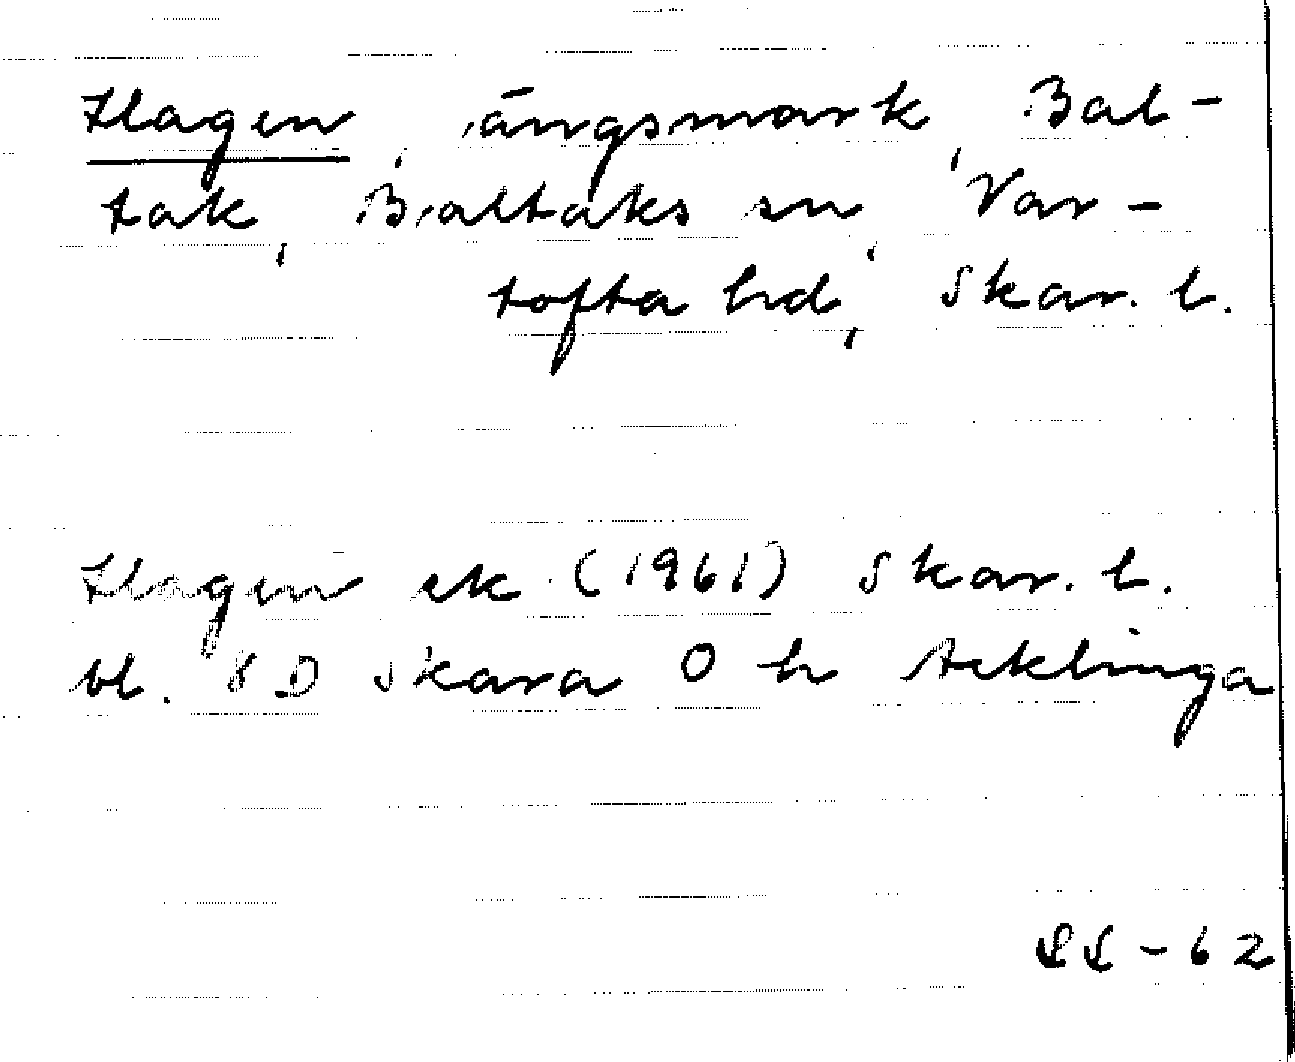 Hagen, ängsmark, Bal-
tak, Baltaks sn, Var-
tofta hd, Skar. l.
Hagen ek (1961) Skar. l.
bl. 8 D Skara 0 h Acklinga
LL - 62